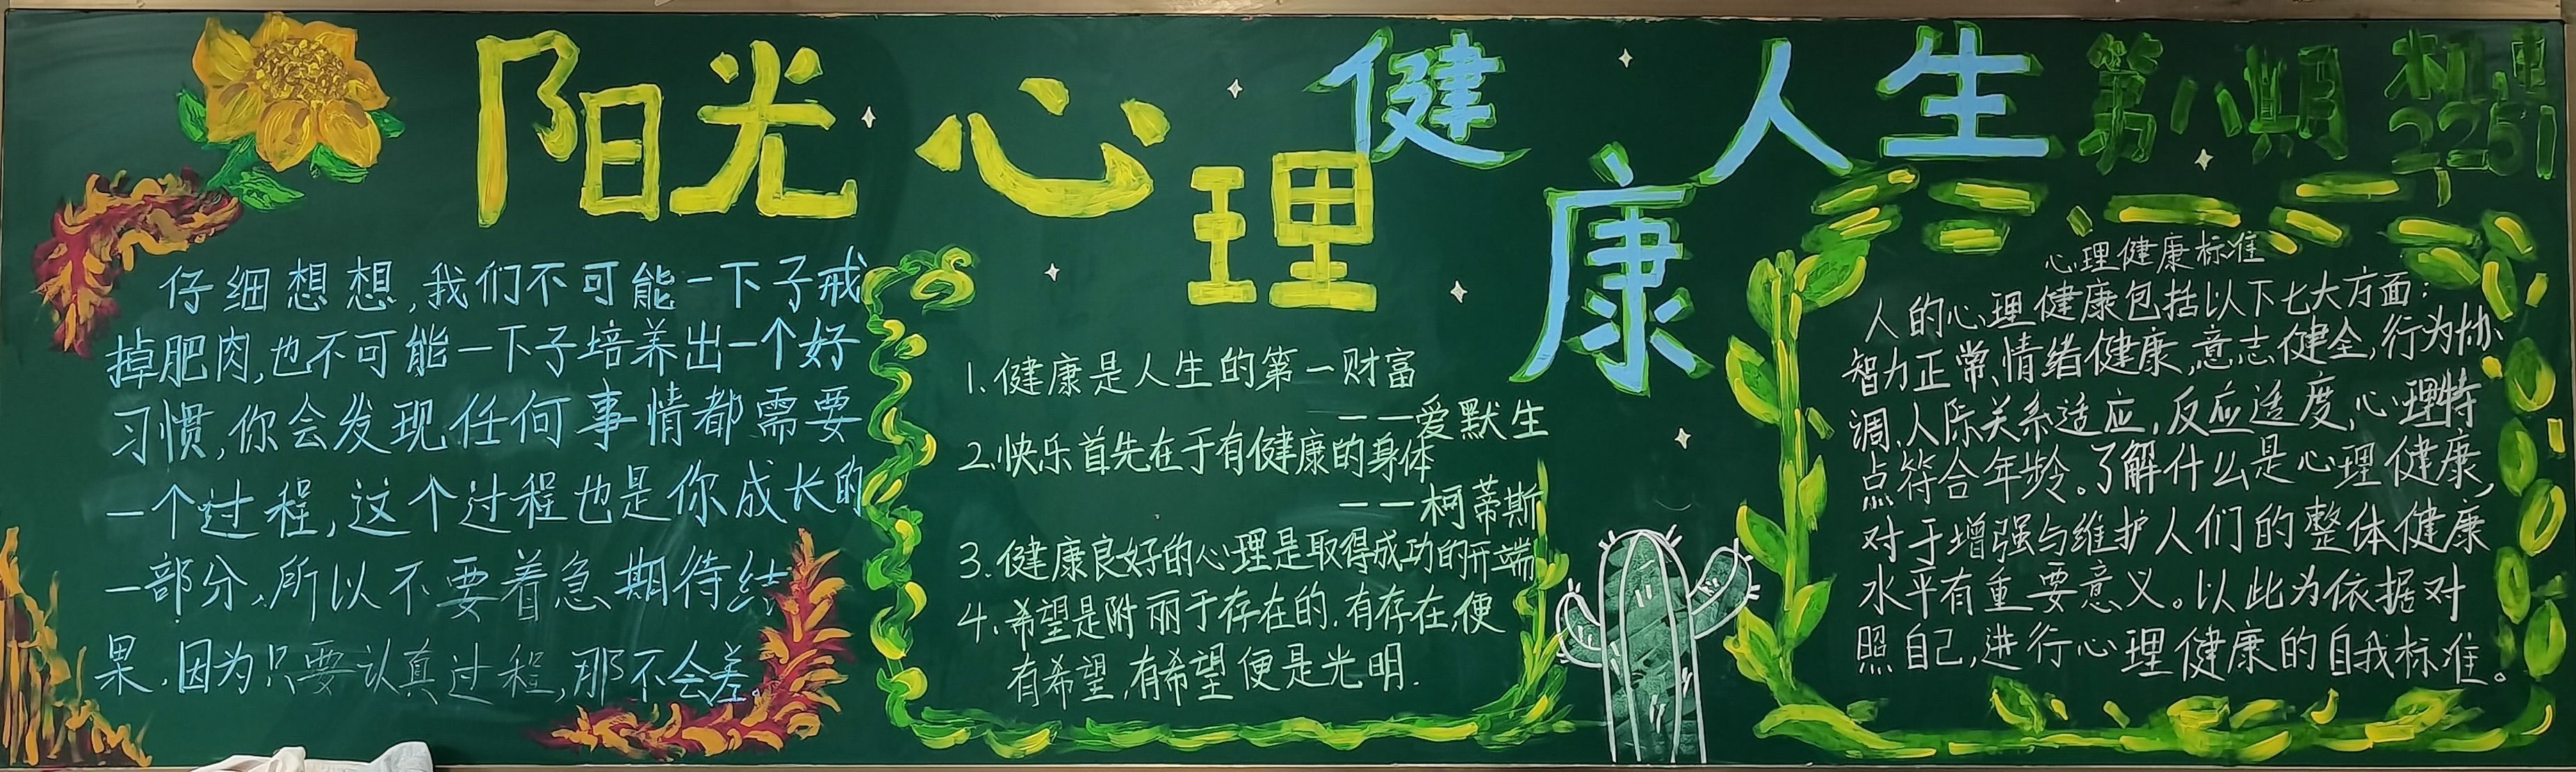 阳光心理健康人生
第八期
机电
2251
仔细想想,我们不可能一下子戒
掉肥肉,也不可能一下子培养出一个好
习惯,你会发现任何事情都需要
一个过程,这个过程也是你成长的
一部分,所以不要着急期待结
果,因为只要认真过程,那不会差。
1.健康是人生的第一财富
——爱默生
2.快乐首先在于有健康的身体
——柯蒂斯
3.健康良好的心理是取得成功的开端
4.希望是附丽于存在的,有存在,便
有希望,有希望便是光明.
心理健康标准
人的心理健康包括以下七大方面:
智力正常、情绪健康,意志健全,行为协
调,人际关系适应,反应适度,心理特
点符合年龄。了解什么是心理健康,
对于增强与维护人们的整体健康
水平有重要意义。以此为依据对
照自己,进行心理健康的自我标准。